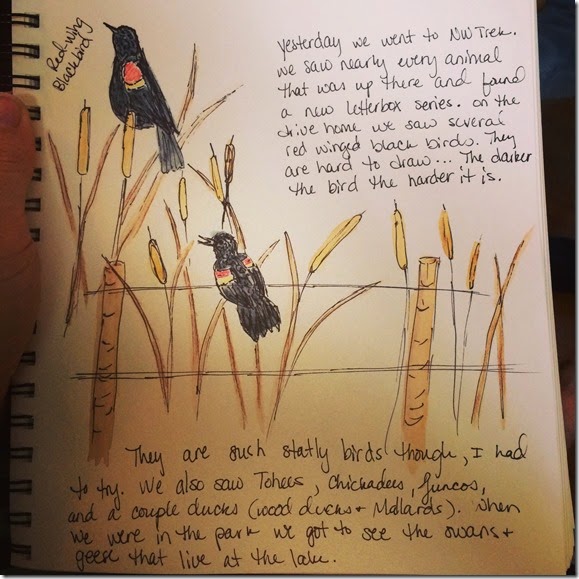 Red-wing
Blackbird
Yesterday we went to NW Trek.
we saw nearly every animal
that was up there and found
a new letterbox series. on the
drive home we saw several
red winged black birds. They
are hard to draw... The darker
the bird the harder it is.
They are such statly birds though, I had
to try. We also saw Tohees, Chickadees, Juncos,
and a couple ducks (wood ducks + Mallards). When
we were in the park we got to see the swans +
geese that live at the lake.